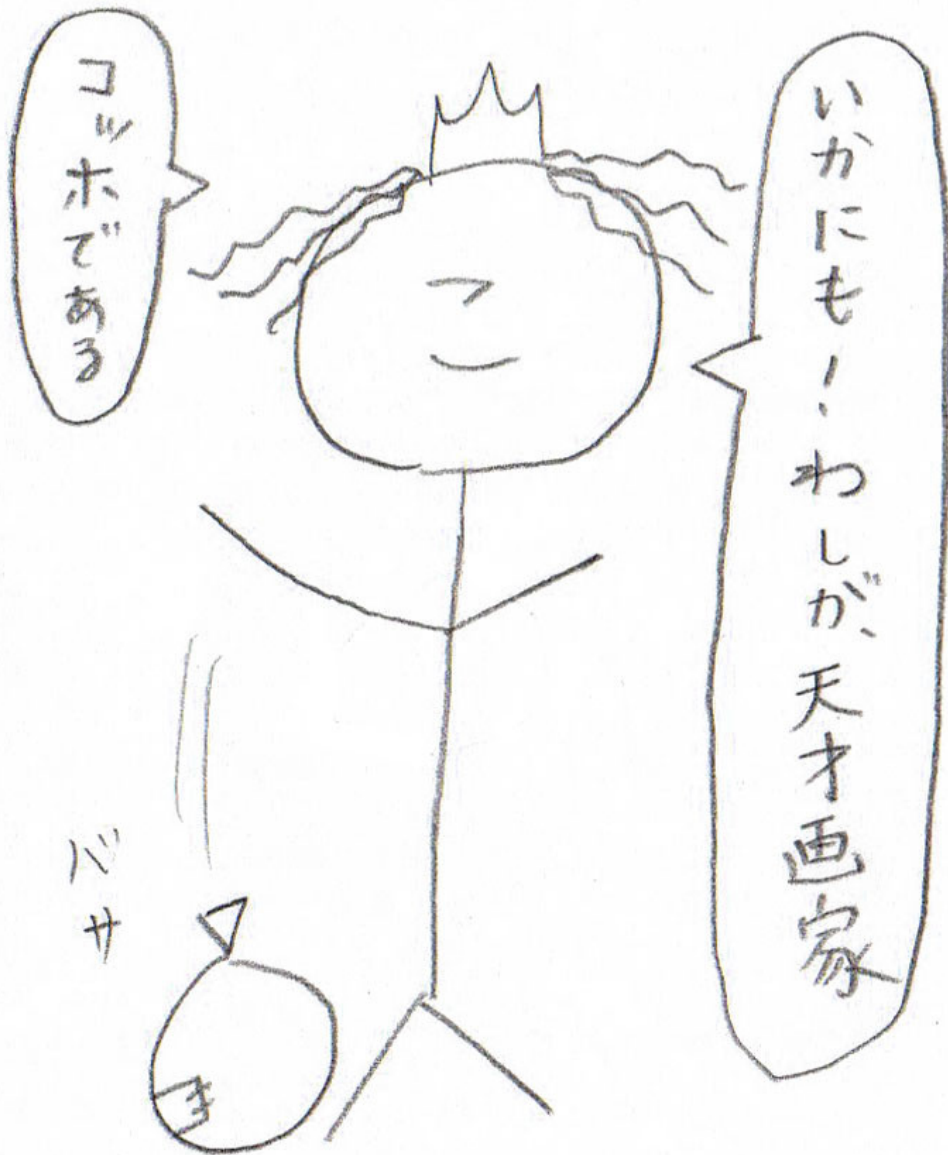 いかにも！わしが、天才画家
コッホである
バサ